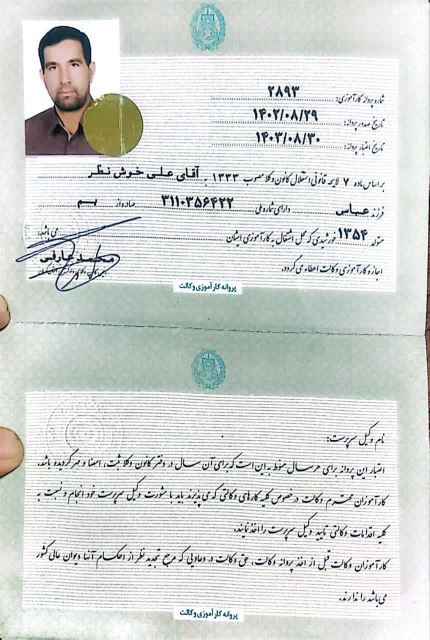 شماره پروانه کارآموزی: ۲۸۹۳
تاریخ صدور پروانه: ۱۴۰۲/۰۸/۲۹
تاریخ اعتبار پروانه: ۱۴۰۳/۰۸/۳۰
بر اساس ماده ۷ لایحه قانونی استقلال کانون وکلا مصوب ۱۳۳۳ به آقای علی خوش نظر
فرزند عباس دارای شماره ملی ۳۱۱۰۳۵۶۴۲۲ صادره از بم
متولد ۱۳۵۴ خورشیدی که محل اشتغال به کارآموزی ایشان می باشد،
اجازه کارآموزی وکالت اعطاء می گردد.
پروانه کارآموزی وکالت
نام وکیل سرپرست:
اعتبار این پروانه برای هر سال منوط به این است که برای آن سال در دفتر کانون وکلا ثبت، امضاء و مهر گردیده باشد.
کارآموزان محترم وکالت در خصوص کلیه کارهای وکالتی که می پذیرند باید با مشورت وکیل سرپرست خود انجام و نسبت به
کلیه اقدامات وکالتی تأیید وکیل سرپرست را اخذ نمایند.
کارآموزان وکالت قبل از اخذ پروانه وکالت، حق وکالت در دعاوی که مرجع تجدید نظر از احکام آنها دیوان عالی کشور
می باشد را ندارند.
پروانه کارآموزی وکالت